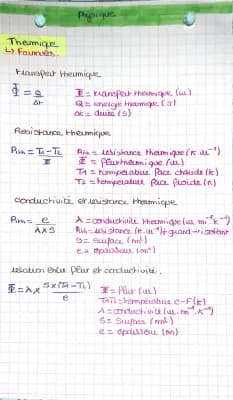 Physique
Thermique
↳ Formules.
transfert thermique
Φ = Q / Δt
Φ = transfert thermique (w)
Q = énergie thermique (J)
Δt = durée (s)
Résistance thermique
Rth = T1 - T2 / Φ
Rth = résistance thermique (K.w⁻¹)
Φ = flux thermique (w)
T1 = température face chaude (k)
T2 = température face froide (k)
conductivité et résistance thermique
Rth = e / λ x S
λ = conductivité thermique (w.m⁻¹.k⁻¹)
Rth = résistance (K.w⁻¹) + grand → isolant
S = surface (m²)
e = épaisseur (m)
relation entre flux et conductivité.
Φ = λ x S x (T1 - T2) / e
Φ = flux (w)
T1 T2 = température C-F (k)
λ = conductivité (w.m⁻¹.k⁻¹)
S = surface (m²)
e = épaisseur (m)